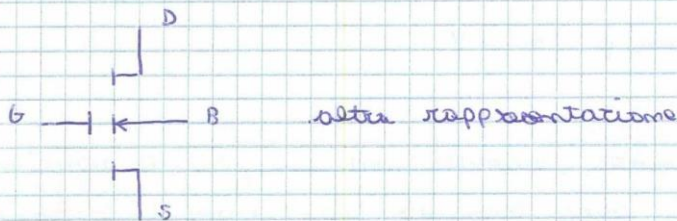 D
G B altra rappresentazione
S